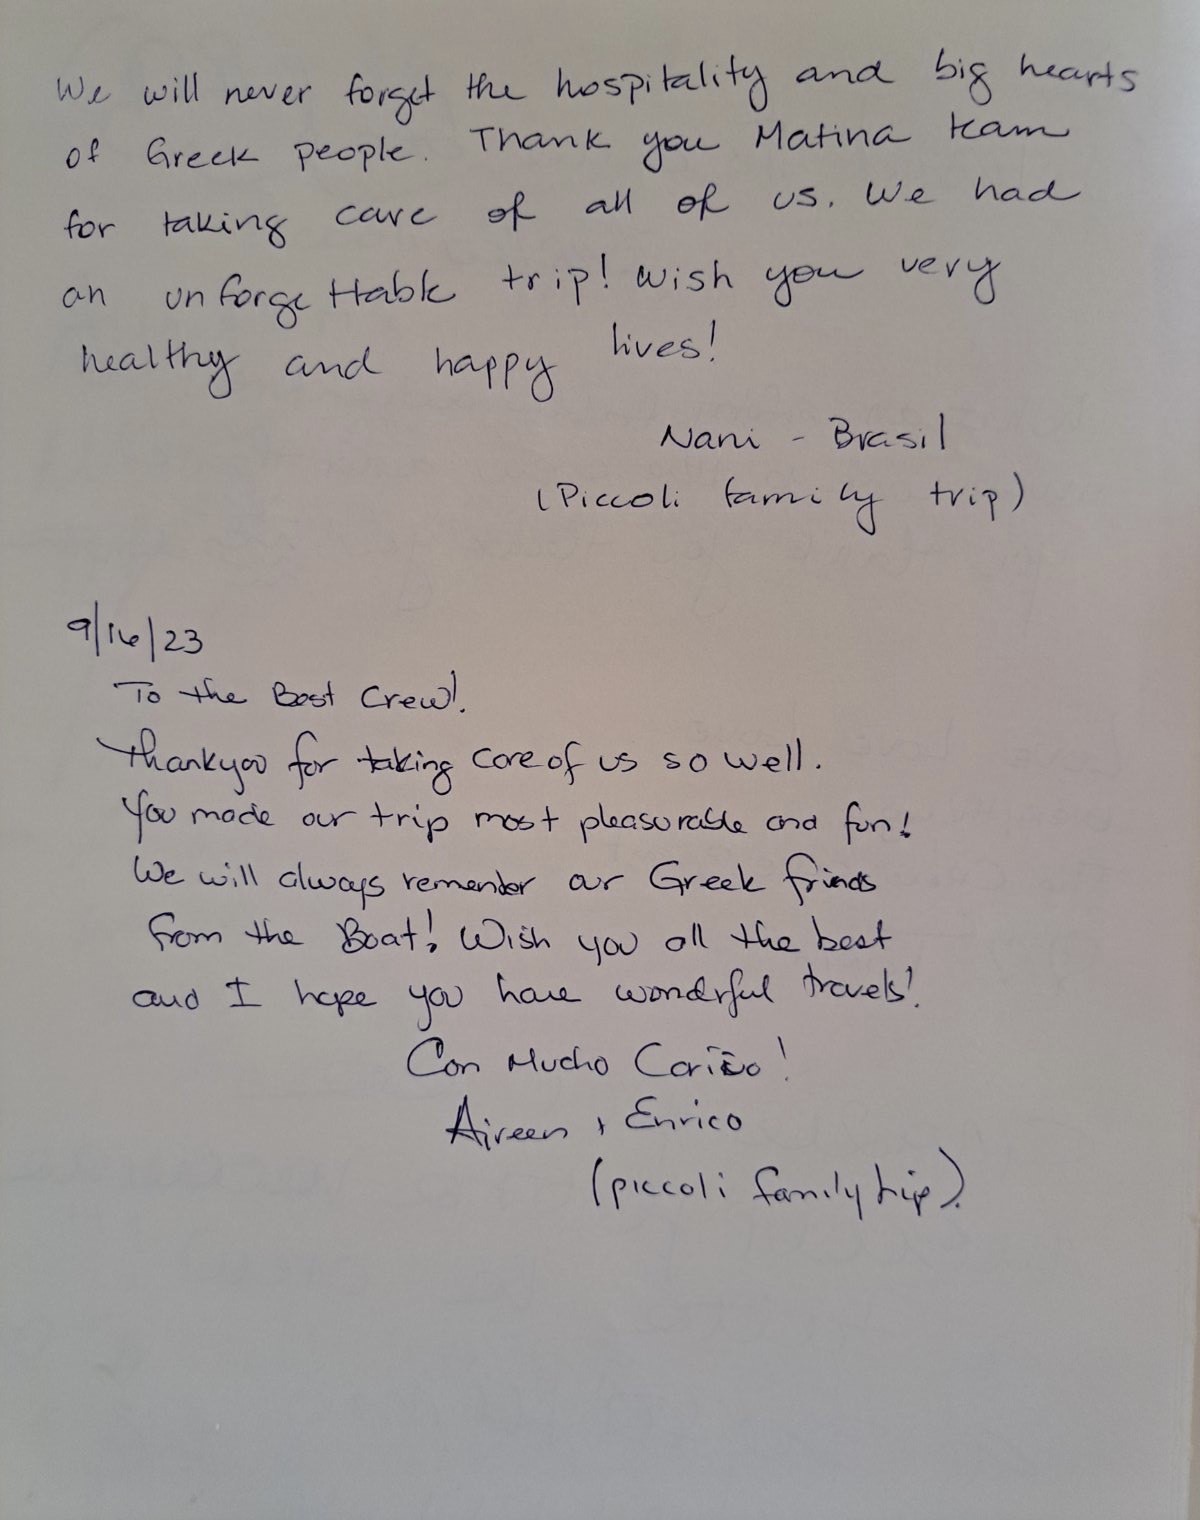 We will never forget the hospitality and big hearts
of Greek people. Thank you Matina team
for taking care of all of us. We had
an unforgettable trip! Wish you very
healthy and happy lives!
Nani - Brasil
(Piccoli family trip)
9/16/23
To the Best Crew!
Thankyou for taking care of us so well.
You made our trip most pleasurable and fun!
We will always remember our Greek friends
from the Boat! Wish you all the best
and I hope you have wonderful travels!
Con Mucho Cariño!
Aireen + Enrico
(piccoli family trip).